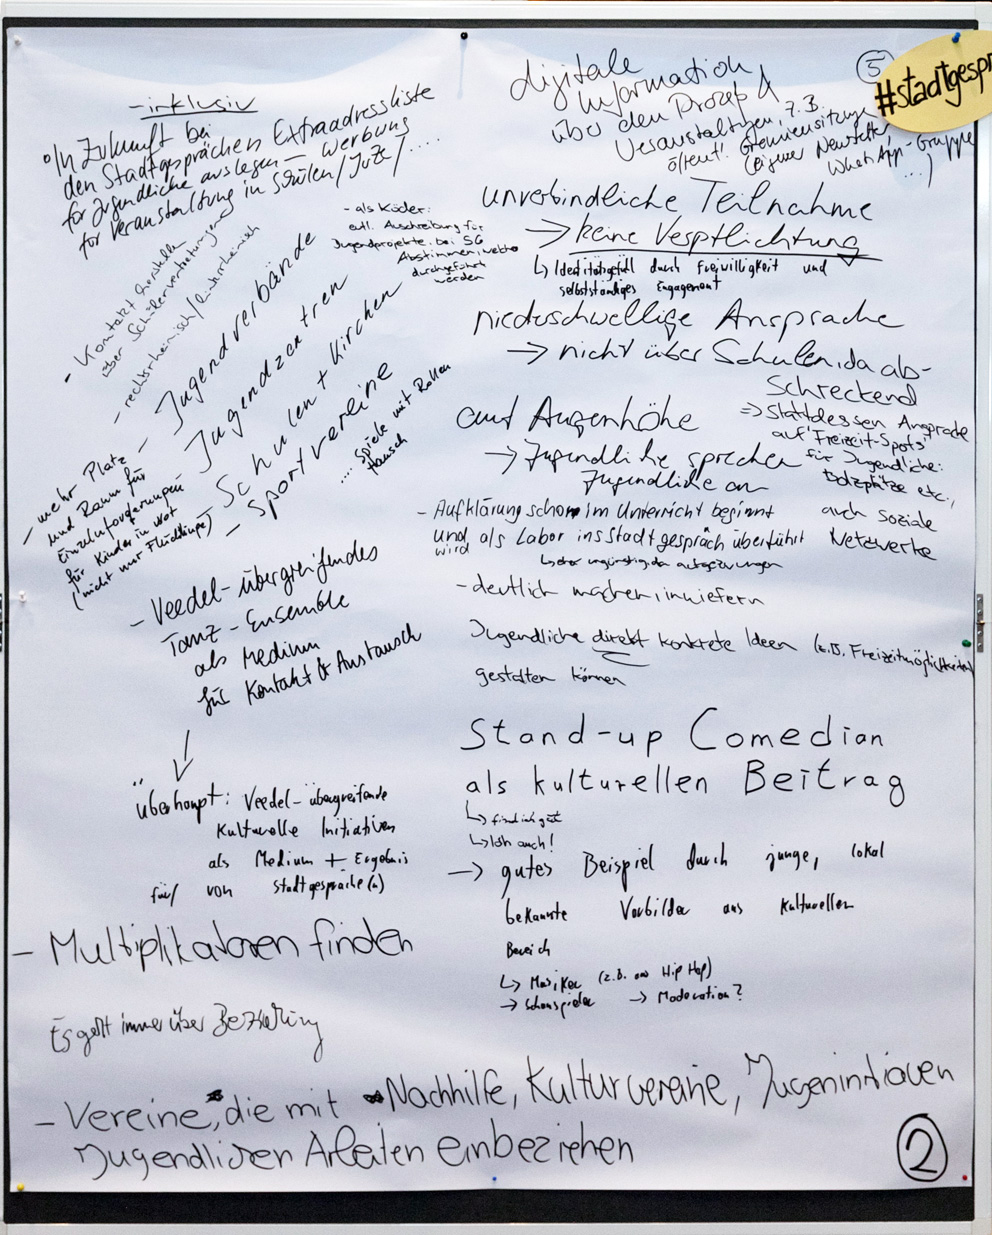 - inklusiv
• In Zukunft bei
den Stadtgesprächen Extraadressliste
für Jugendliche auslegen – Werbung
für Veranstaltung in Schulen/JuZe/....
- Kontakt herstellen
über Schülervertretungen
- rechtsrheinisch/linksrheinisch
- als Köder:
evtl. Ausschreibung für
Jugendprojekte, bei SG
Abstimmen, welche
durchgeführt
werden
- Jugendverbände
Jugendzentren
Schulen + Kirchen
- Sportvereine
... Spiele mit Rollen
tausch
- mehr Platz
und Raum für
für Kinder in Not
(nicht nur Flüchtlinge)
- Veedel-übergreifendes
Tanz-Ensemble
als Medium
für Kontakt & Austausch
überhaupt: Veedel-übergreifende
Kulturelle Initiativen
als Medium + Ergebnis
für/ von Stadtgespräche(n)
- Multiplikatoren finden
Es geht immer über Beziehung
- Vereine, die mit Nachhilfe, Kulturvereine, Jugeninitiaven
Jugendlichen Arbeiten einbeziehen
5
#stadtgespr
digitale
Information
über den Prozeß &
Veranstaltungen, z.B.
öffentl. Gremiensitzung
(eigener Newsletter
WhatsApp-Gruppe
...)
unverbindliche Teilnahme
→ keine Verpflichtung
↳ Identitätsgefühl durch Freiwilligkeit und
selbstständiges Engagement
niedrschwellige Ansprache
→ nicht über Schulen, da ab-
schreckend
⇒ Stattdessen Ansprache
auf "Freizeit-Spots"
für Jugendliche:
Bolzplätze etc.,
auch Soziale
Netzwerke
auf Augenhöhe
→ Jugendliche sprechen
Jugendliche an
- Aufklärung schon im Unterricht beginnt
und als Labor ins Stadtgespräch überführt
wird
↳ eher ungünstig, da aufgezwungen
- deutlich machen, inwiefern
Jugendliche direkt konkrete Ideen (z.B. Freizeitmöglichkeiten)
gestalten können
Stand-up Comedian
als kulturellen Beitrag
↳ find ich gut
↳ Ich auch!
→ gutes Beispiel durch junge, lokal
bekannte Vorbilder aus kulturellen
Bereich
↳ Musiker (z.B. aus Hip Hop)
→ Schauspieler → Moderation?
2